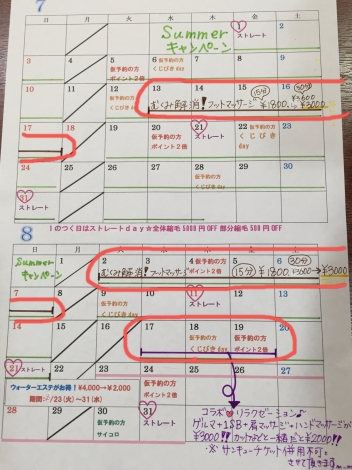 7
Summer
キャンペーン
日 月 火 水 木 金 土
1 2
ストレート
3 4 5 6 7 8 9
仮予約の方
ポイント2倍
仮予約の方
くじびきday
10 11 12 13 14 15 16
仮予約の方
くじびきday
むくみ解消!フットマッサージ 15分 ¥1800 30分 ¥3600→¥3000
17 18 19 20 21 22 23
仮予約の方
ポイント2倍
ストレート
仮予約の方
くじびきday
24 25 26 27 28 29 30
31
ストレート
1のつく日はストレートday☆全体縮毛5000円OFF 部分縮毛500円OFF
8
Summer
キャンペーン
日 月 火 水 木 金 土
1 2 3 4 5 6
仮予約の方
ポイント2倍
むくみ解消!フットマッサージ 15分 ¥1800 30分 ¥3600→¥3000
7 8 9 10 11 12 13
仮予約の方
くじびきday
ストレート
仮予約の方
ポイント2倍
14 15 16 17 18 19 20
仮予約の方
くじびきday
仮予約の方
ポイント2倍
21 22 23 24 25 26 27
ストレート
仮予約の方
ポイント2倍
仮予約の方
くじびきday
ウォーターエステがお得!¥4,000→¥2,000
期間:8/23(火)~31(水)
28 29 30 31
仮予約の方
サイコロ
ストレート
コラボ♥リラクゼーション♪
ゲルマ+1SB+肩マッサージ+ハンドマッサージが
¥3000!!カットなどと一緒だと¥2000!!
※サンキューチケット併用不可。
させて頂きます